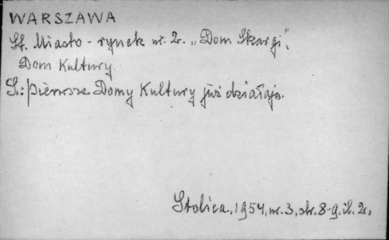 WARSZAWA
St. Miasto - rynek nr. 2. "Dom Skargi".
Dom Kultury
S.: pierwsze Domy Kultury już działają.
Stolica, 1954, nr. 3, str. 8-9. il. 2.